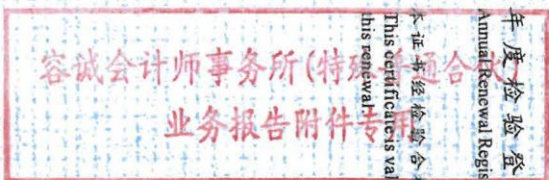 容诚会计师事务所(特殊普通合伙)
业务报告附件专用
年度检验登
Annual Renewal Regis
本证书经检验合
This certificate is val
this renewal